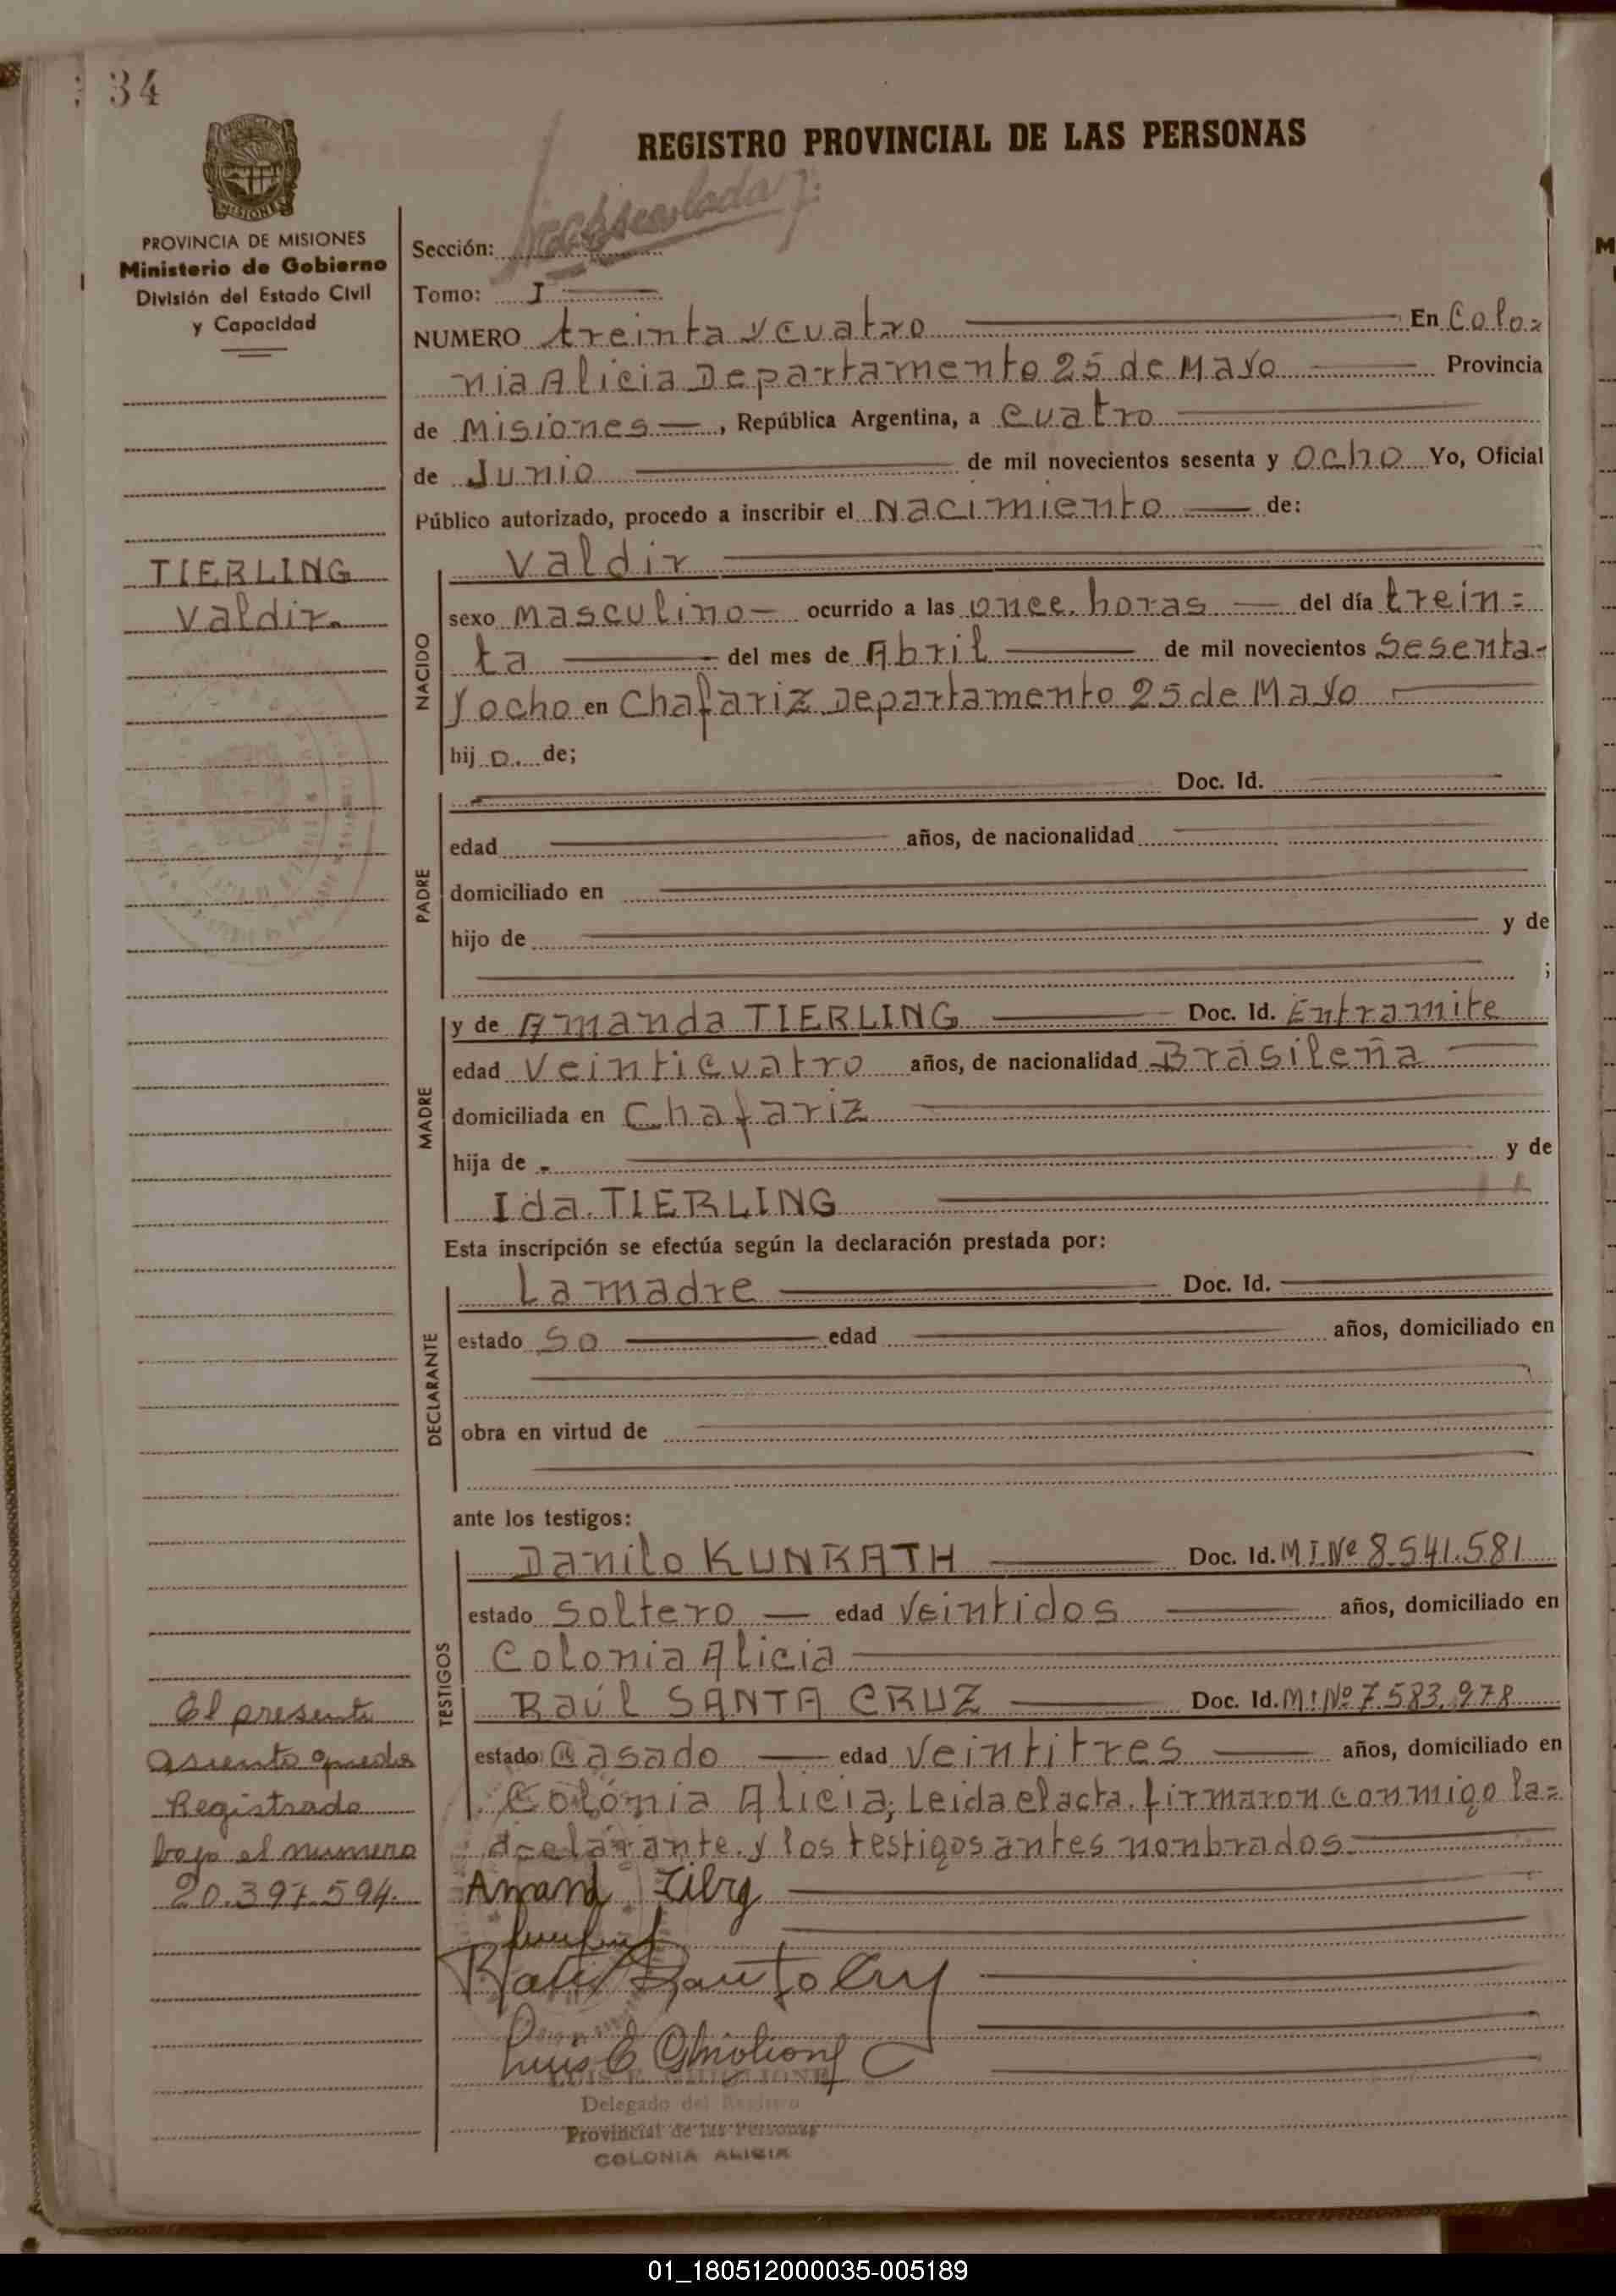 34
REGISTRO PROVINCIAL DE LAS PERSONAS
MISIONES
PROVINCIA DE MISIONES
Ministerio de Gobierno
División del Estado Civil
y Capacidad
TIERLING
Valdir.
El presente
asiento queda
Registrado
bajo el numero
20.397.594.
Sección:
Tomo: I
NUMERO treinta y cuatro En Colo=
nia Alicia Departamento 25 de Mayo Provincia
de Misiones —, República Argentina, a cuatro
de Junio de mil novecientos sesenta y ocho Yo, Oficial
Público autorizado, procedo a inscribir el Nacimiento de:
NACIDO
Valdir
sexo masculino — ocurrido a las once horas — del día trein=
ta del mes de Abril de mil novecientos sesenta-
y ocho en Chafariz Departamento 25 de Mayo
hijo. de;
PADRE
Doc. Id.
edad años, de nacionalidad
domiciliado en
hijo de y de
;
MADRE
y de Amanda TIERLING Doc. Id. En tramite
edad veinticuatro años, de nacionalidad Brasileña
domiciliada en Chafariz
hija de y de
Ida TIERLING
Esta inscripción se efectúa según la declaración prestada por:
DECLARANTE
La madre Doc. Id.
estado so edad años, domiciliado en
obra en virtud de
ante los testigos:
TESTIGOS
Danilo KUNRATH Doc. Id. M I. Nº 8.541.581
estado soltero — edad veintidos años, domiciliado en
Colonia Alicia
Raúl SANTA CRUZ Doc. Id. M I Nº 7.583.978
estado Casado — edad veintitres años, domiciliado en
Colonia Alicia; Leida el acta. firmaron conmigo la=
declarante y los testigos antes nonbrados.
Raul Santa Cruz
LUIS E. GHIGLIONE
Delegado del Registro
Provincial de las Personas
COLONIA ALICIA
01_180512000035-005189